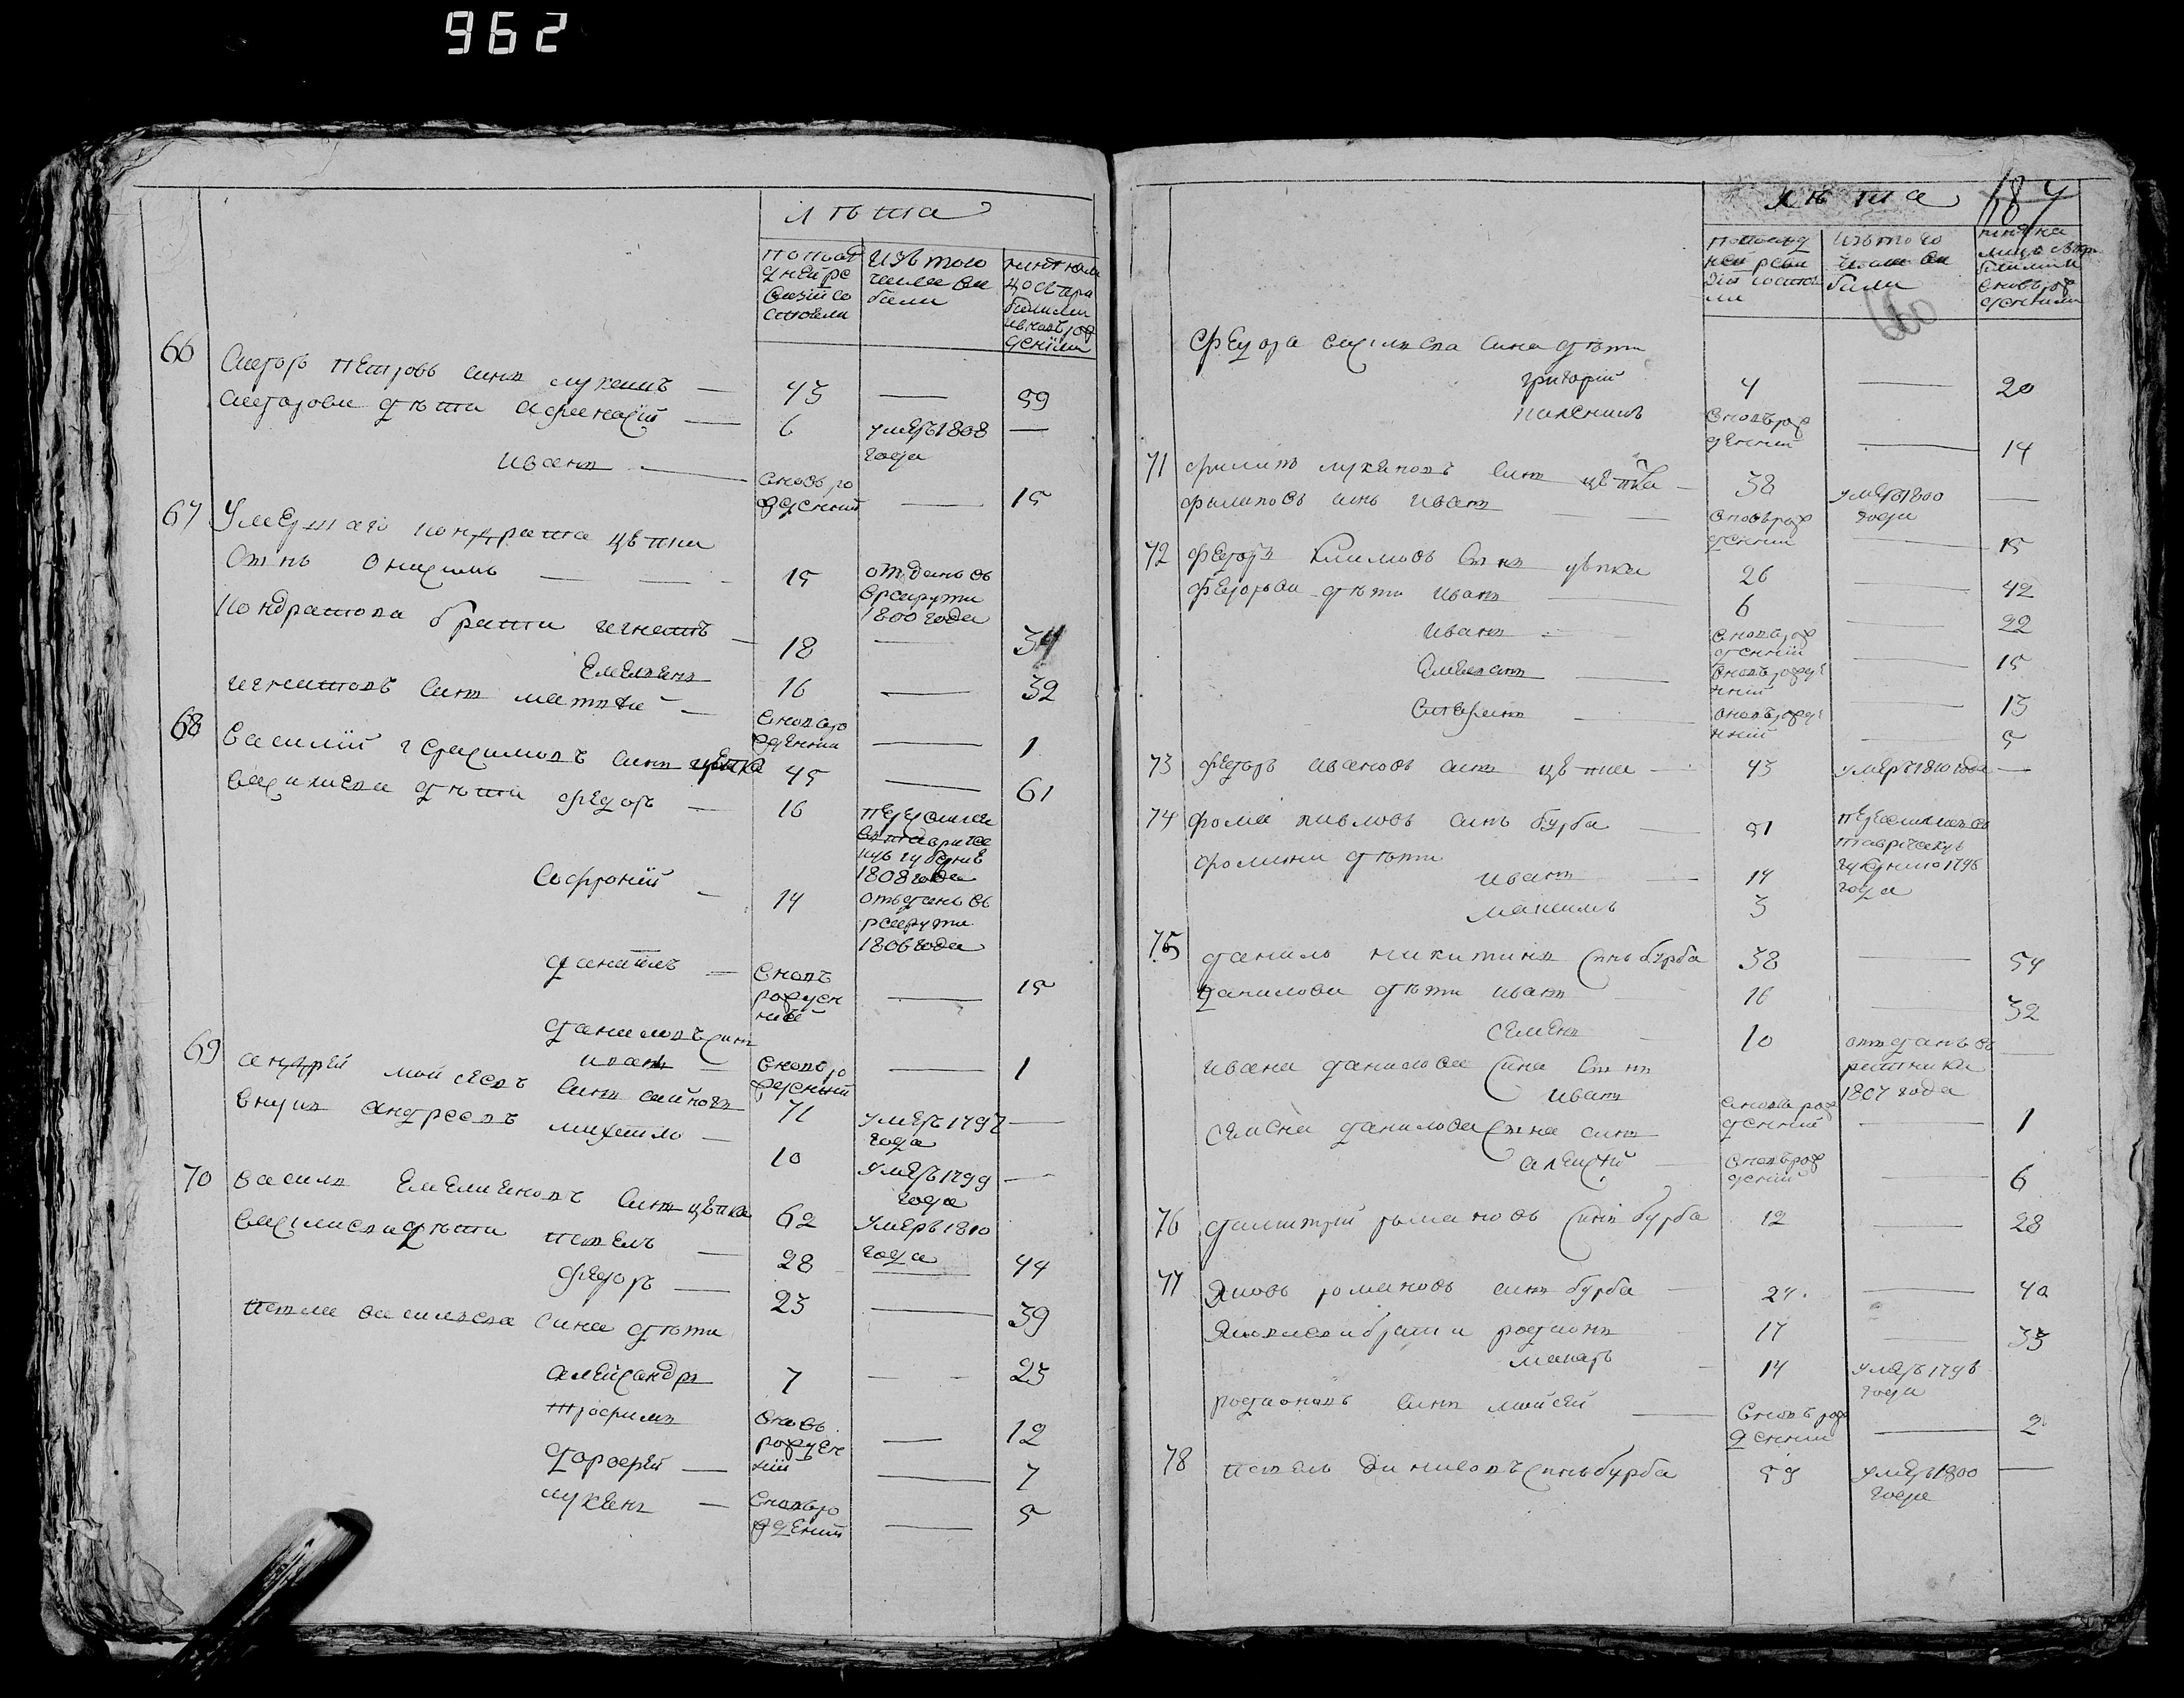 962
лѣта
по послѣ
дней ре
визіи со
стояли
изъ того
числа вы
были
ныне на ли
цо съ при
былыми
и вновь рож
денными
66
петровъ синъ лукашъ — 43 — 59
дѣти афанасій — 6 умеръ 1808 —
года
иванъ — вновь ро
жденний — 15
67 Умершаго кондрата цвѣтки
синъ онисимъ — — 15 отданъ въ
рекруты
1800 года
кондратова братти игнатъ — 18 — 34
Емельянъ 16 — 32
игнатовъ синъ матвѣй — вновь ро
жденний — 1
68 Василій герасимовъ синъ цвѣтка 45 — 61
василиева дѣти федоръ — 16
въ тавриче
скую губернию
1808 года
софроній — 14 отъданъ въ
рекруты
1806 года
данилъ — вновь
рожден
ний — 15
даниловъ синъ
иванъ — вновь ро
жденний — 1
69 андрей мойсеевъ синъ 71 умеръ 1797 —
года
внукъ андреевъ михайло — 10 умеръ 1799 —
года
70 василь Емелияновъ синъ цвѣтка 62 умеръ 1810
года
василиева дѣти павелъ — 28 — 44
федоръ — 23 — 39
павла василиева сина дѣти
алейсандръ 7 — — 23
трофимъ вновь
рожден
ний — 12
дорофей — — 7
лукянъ — вновь ро
жденний — 5
лѣта
187
по послѣд
ней реви
зіи состоя
ли
изъ того
числа вы
были
ныне на
лицо съ при
былыми и
вновь рож
денними
660
Федора василиева сина дѣти
григорій 4 — 20
вновь рож
денний — 14
71 филипъ лукяновъ синъ цвѣтка — 38 умеръ 1800 —
года
филиповъ синъ иванъ — — вновь рож
денний — 15
72 федоръ климовъ синъ цвѣтка 26 — 42
федорови дѣти иванъ — 6 — 22
иванъ — вновь рож
денний — 15
Емельянъ — вновь рожде
нний — 13
— вновь рожде
нний — 5
73 федоръ ивановъ синъ цвѣтка — 43 умеръ 1810 года —
74 фома павловъ синъ бурба — 51 переселился въ
таврическую
губернию 179
года
фомини дѣти
иванъ — 14
максимъ 3
75 данило никитинъ синъ бурба 38 — 54
данилови дѣти иванъ 16 — 32
семенъ — 10 отданъ въ —
ратники
1807 года
ивана данилова сина синъ
иванъ вновь рож
денний — 1
семена данилова сина синъ
алексѣй — вновь рож
дений — 6
76 димитрій романовъ синъ бурба 12 — 28
77 Яковъ романовъ синъ бурба — 24 — 40
Яковлеви братии родионъ 17 — 33
макаръ — 14 умеръ 179
года
родионовъ синъ мойсей — вновь рож
денний — 2
78 павелъ денисовъ синъ бурба 59 умеръ 1800 —
года